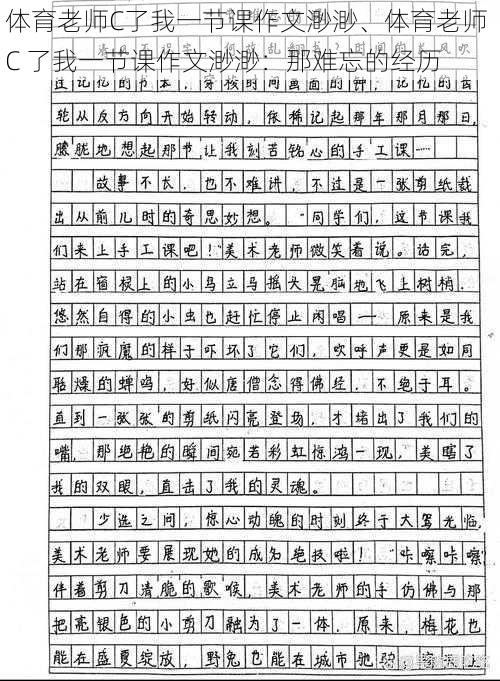 体育老师C了我一节课作文渺渺、体育老师
C 了我一节课作文渺渺：那难忘的经历
清风不识字，何故乱翻书？时间的长风吹
过记忆的书本，穿梭时间画面的钟，记忆的齿
轮从反方向开始转动，依稀记起那年那月那日，
朦胧地想起那节让我刻苦铭心的手工课……
故事不长，也不难讲，不过是一张剪纸裁
出从前儿时的奇思妙想。“同学们，这节课我
们来上手工课吧！”美术老师微笑着说。话完，
站在窗棂上的小鸟立马摇头晃脑地飞上树梢，
悠然自得的小虫也赶忙停止闲唱——原来是我
们那疯魔的样子吓坏了它们，欢呼声更是如同
聒燥的蝉鸣，好似唐僧念得佛经，不绝于耳。
直到一张张的剪纸闪亮登场，才堵出了我们的
嘴，那绝艳的瞬间宛若彩虹惊鸿一现，美瞎了
我的双眼，直击了我的灵魂。
少选之间，惊心动魄的时刻终于大驾光临，
美术老师要展现她的成名绝技啦！“咔嚓咔嚓”
伴着剪刀清脆的歌喉，美术老师的手仿佛与那
把亮银色的小剪刀融为了一体，原来，梅花也
能在盛夏绽放，野兔也能在城市驰